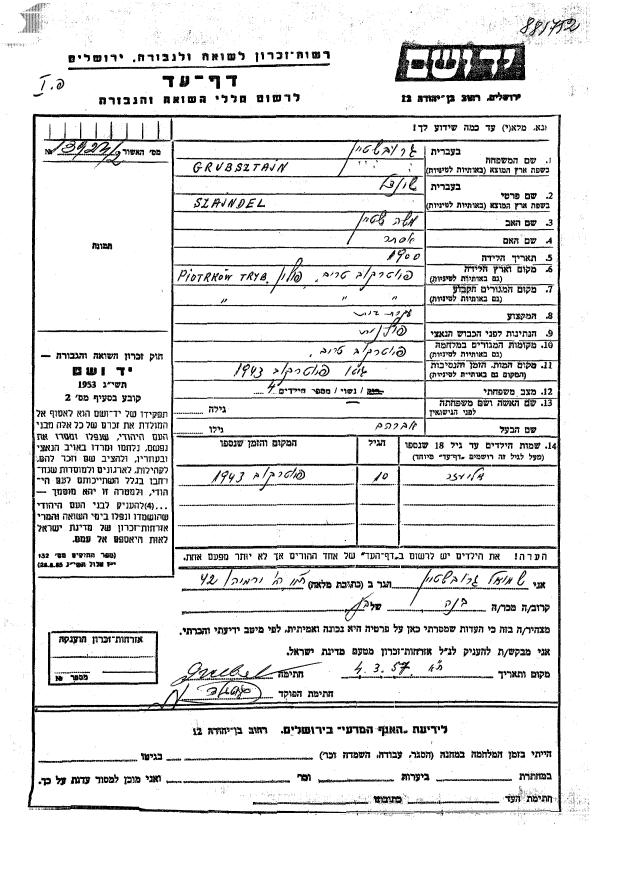 881752
רשות-זכרון לשואה ולגבורה, ירושלים
יד ושם
דף-עד
פ.I
לרשום חללי השואה והגבורה
ירושלים, רחוב בן-יהודה 12
נא, מלא(י) עד כמה שידוע לך!
מס׳ האשור
№
תמונה
1. שם המשפחה
בעברית
גרובשטיין
בשפת ארץ המוצא (באותיות לטיניות)
GRUBSZTAJN
2. שם פרטי
בעברית
שיינדל
בשפת ארץ המוצא (באותיות לטיניות)
SZAINDEL
3. שם האב
משה
4. שם האם
אסתר
5. תאריך הלידה
1900
6. מקום וארץ הלידה
(גם באותיות לטיניות)
פיוטרקוב טריב. פולין PIOTRKÓW TRYB.
7. מקום המגורים הקבוע
(גם באותיות לטיניות)
" " "
8. המקצוע
עקרת בית
9. הנתינות לפני הכבוש הנאצי
פולנית
10. מקומות המגורים במלחמה
(גם באותיות לטיניות)
פיוטרקוב טריב.
11. מקום המות, הזמן והנסיבות
(המקום גם באותיות לטיניות)
גיטו פיוטרקוב 1943
12. מצב משפחתי
רוק / נשוי / מספר הילדים 4
13. שם האשה ושם משפחתה
לפני הנשואין
גילה
שם הבעל
אברהם
גילו
14. שמות הילדים עד גיל 18 שנספו
(מעל לגיל זה רושמים „דף-עד" מיוחד)
הגיל
המקום והזמן שנספו
אליעזר
10
פיוטרקוב 1943
הערה! את הילדים יש לרשום ב„דף-העד" של אחד ההורים אך לא יותר מפעם אחת.
חוק זכרון השואה והגבורה —
יד ושם
תשי״ג 1953
קובע בסעיף מס׳ 2
תפקידו של יד-ושם הוא לאסוף אל
המולדת את זכרם של כל אלה מבני
העם היהודי, שנפלו ומסרו את
נפשם, נלחמו ומרדו באויב הנאצי
ובעוזריו, ולהציב שם וזכר להם,
לקהילות, לארגונים ולמוסדות שנח-
רבו בגלל השתייכותם לעם היי-
הודי, ולמטרה זו יהא מוסמך —
...(4) להעניק לבני העם היהודי
שהושמדו ונפלו בימי השואה והמרי
אזרחות-זכרון של מדינת ישראל
לאות היאספם אל עמם.
(ספר החוקים מס׳ 132
אני שמואל גרובשטיין הגר ב (כתובת מלאה) 42
קרוב/ה מכר/ה בנה של
מצהיר/ה בזה כי העדות שמסרתי כאן על פרטיה היא נכונה ואמיתית, לפי מיטב ידיעתי והכרתי.
אני מבקש/ת להעניק לנ״ל אזרחות-זכרון מטעם מדינת ישראל.
מקום ותאריך ת״א 4.3.57 חתימה
חתימת הפוקד
אזרחות-זכרון הוענקה
מספר №
לידיעת „האגף המדעי" בירושלים, רחוב בן-יהודה 12
הייתי בזמן המלחמה במחנה (הסגר, עבודה, השמדה וכו׳) בגיטו
במחתרת ביערות וכו׳ ואני מוכן למסור עדות על כך.
חתימת העד כתובתו